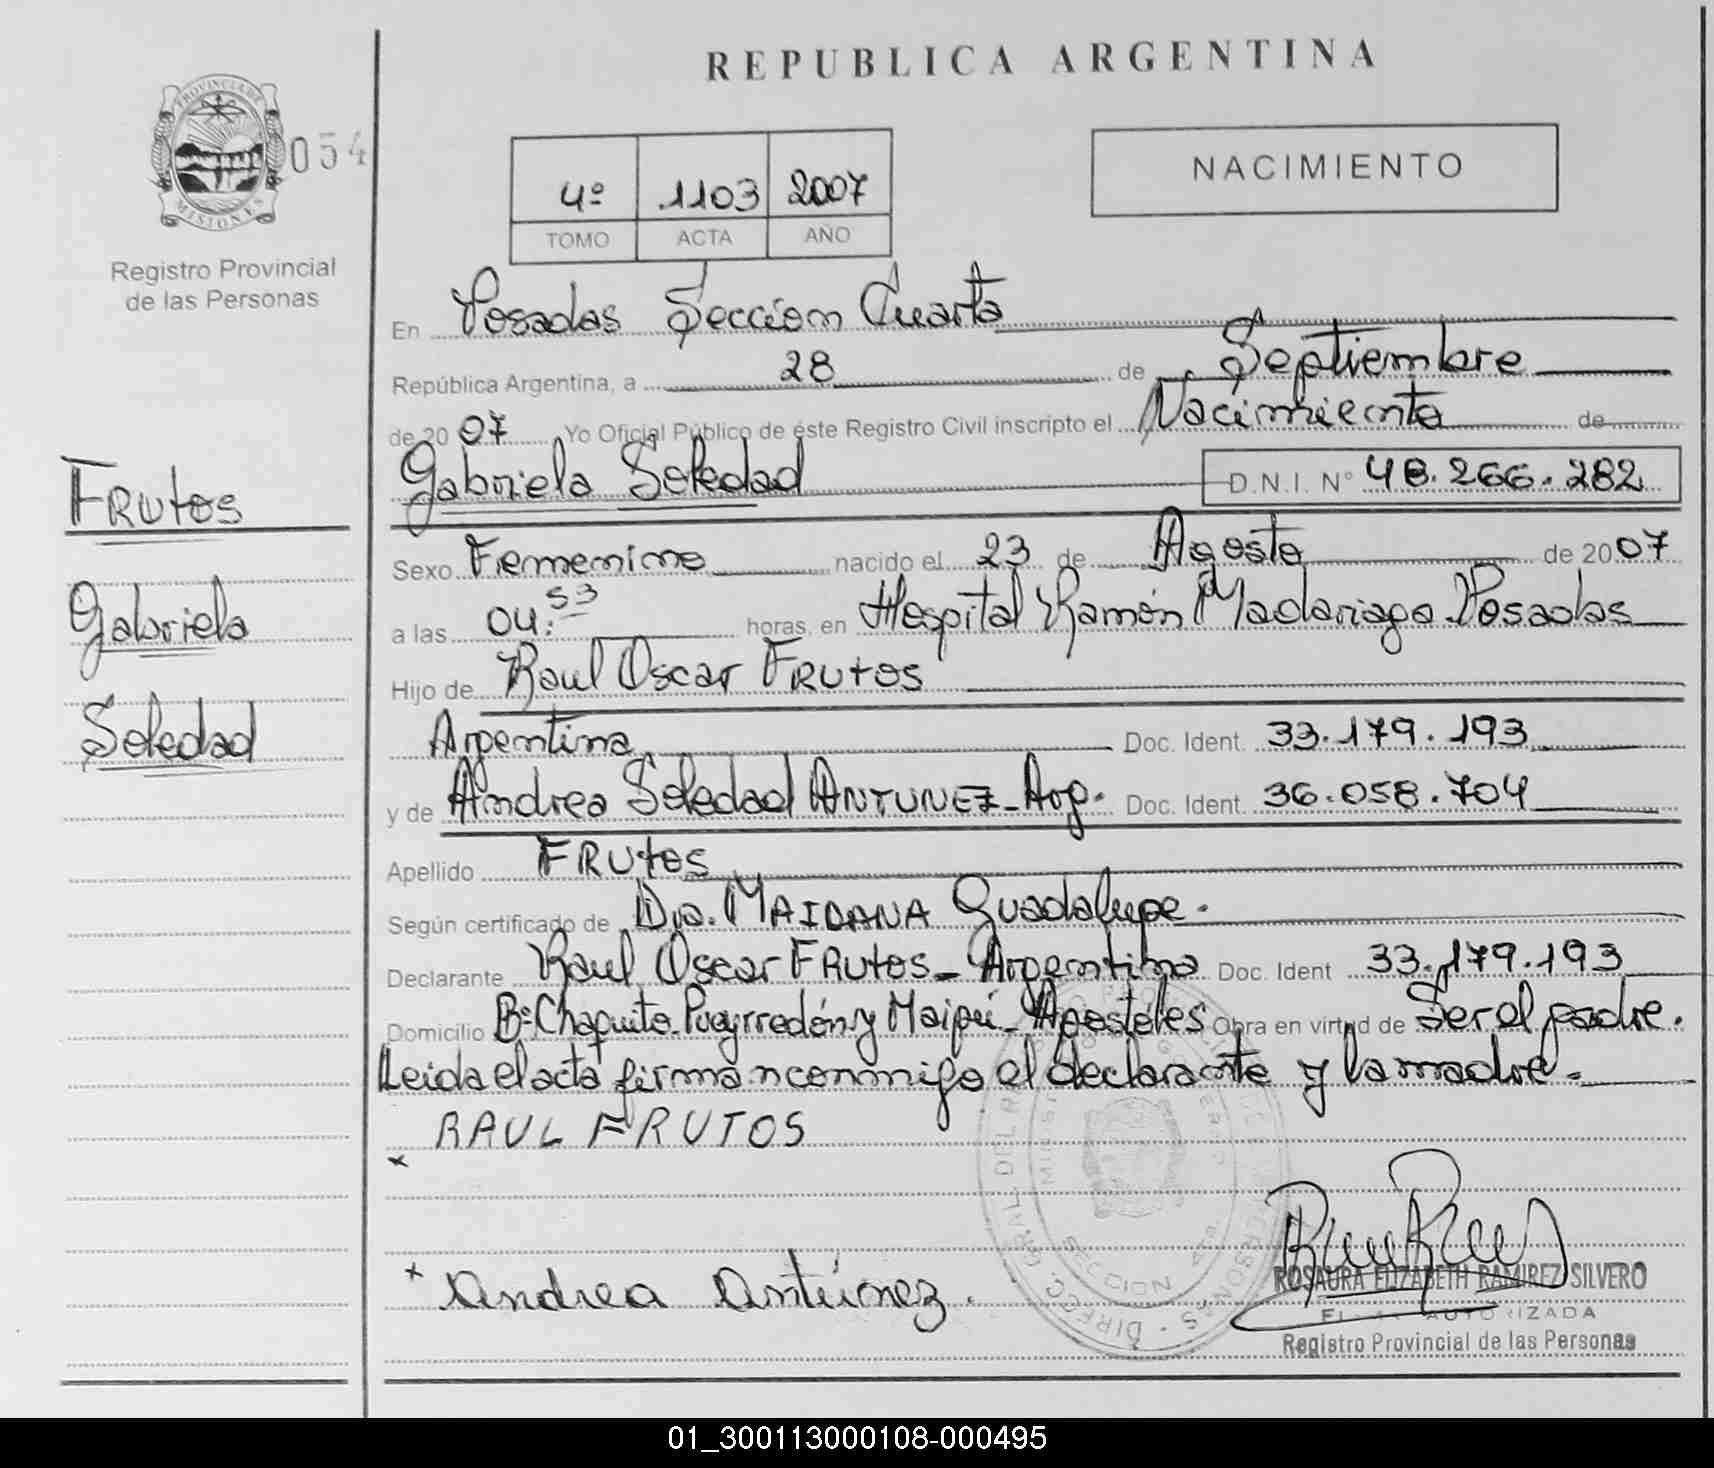 REPUBLICA ARGENTINA
PROVINCIA DE
MISIONES
054
Registro Provincial
de las Personas
4º 1103 2007
TOMO ACTA AÑO
NACIMIENTO
En Posadas Seccion Cuarta
República Argentina, a 28 de Septiembre
de 2007 Yo Oficial Público de éste Registro Civil inscripto el Nacimiento de
Gabriela Soledad D.N.I. Nº 48.266.282
Frutos
Gabriela
Soledad
Sexo Femenino nacido el 23 de Agosto de 2007
a las 04:53 horas, en Hospital Ramón Madariaga Posadas
Hijo de Raul Oscar Frutos
Argentina Doc. Ident. 33.179.193
y de Andrea Soledad ANTUNEZ - Arg. Doc. Ident. 36.058.704
Apellido Frutos
Según certificado de Dra. MAIDANA Guadalupe.
Declarante Raul Oscar Frutos - Argentino Doc. Ident 33.179.193
Domicilio Bº Chaquito. Pueyrredón y Maipú - Apostoles Obra en virtud de Ser el padre.
Leida el acta firman conmigo el declarante y la madre.
RAUL FRUTOS
x
x Andrea Antúnez.
ROSAURA ELIZABETH RAMIREZ SILVERO
AUTORIZADA
Registro Provincial de las Personas
01_300113000108-000495